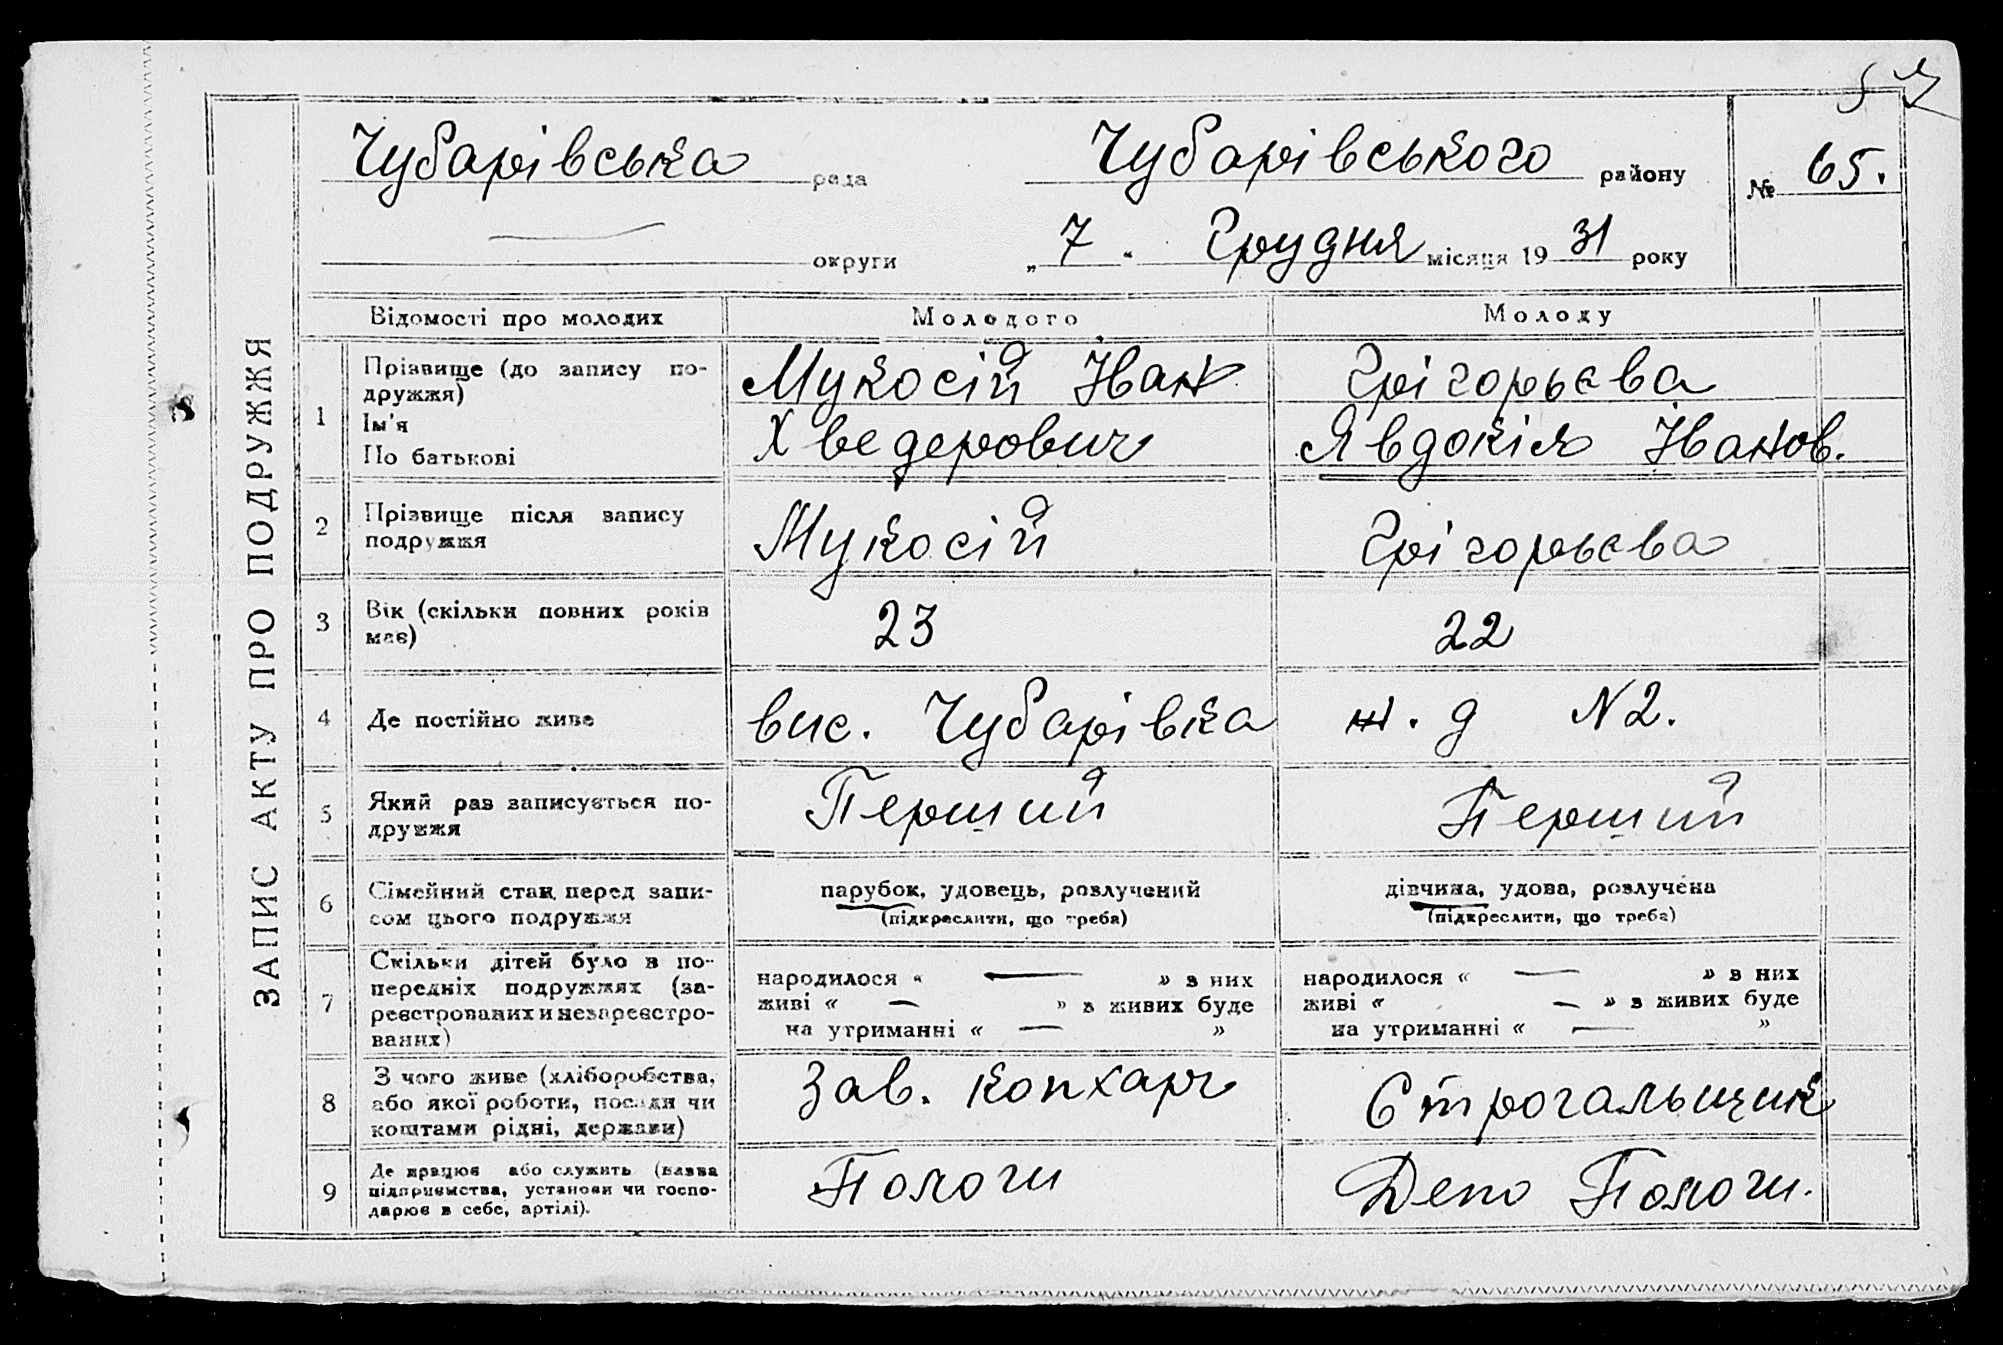 57
Чубарівська рада Чубарівського району № 65.
округи „7“ Грудня місяця 1931 року
ЗАПИС АКТУ ПРО ПОДРУЖЖЯ
Відомості про молодих Молодого Молоду
1 Прізвище (до запису по-
дружжя)
Ім'я
По батькові
Мукосій Іван
Хведерович
Грігорьєва
Явдокія Іванов.
2 Прізвище після запису
подружжя
Мукосій
Грігорьєва
3 Вік (скільки повних років
має)
23
22
4 Де постійно живе
вис. Чубарівка
ж. д N2.
5 Який раз записується по-
дружжя
Перший
Перший
6 Сімейний стан перед запи-
сом цього подружжя
парубок, удовець, розлучений
(підкреслити, що треба)
дівчина, удова, розлучена
(підкреслити, що треба)
7 Скільки дітей було в по-
передніх подружжях (за-
реєстрованих и незареєстро-
ваних)
народилося « — » з них
живі « — » з живих буде
на утриманні « — »
народилося « — » з них
живі « — » з живих буде
на утриманні « — »
8 З чого живе (хліборобства,
або якої роботи, посади чи
коштами рідні, держави)
Зав. копхарч
Строгальщик
9 Де працює або служить (назва
підприємства, установи чи госпо-
дарює в себе, артілі).
Пологи
Депо Пологи.